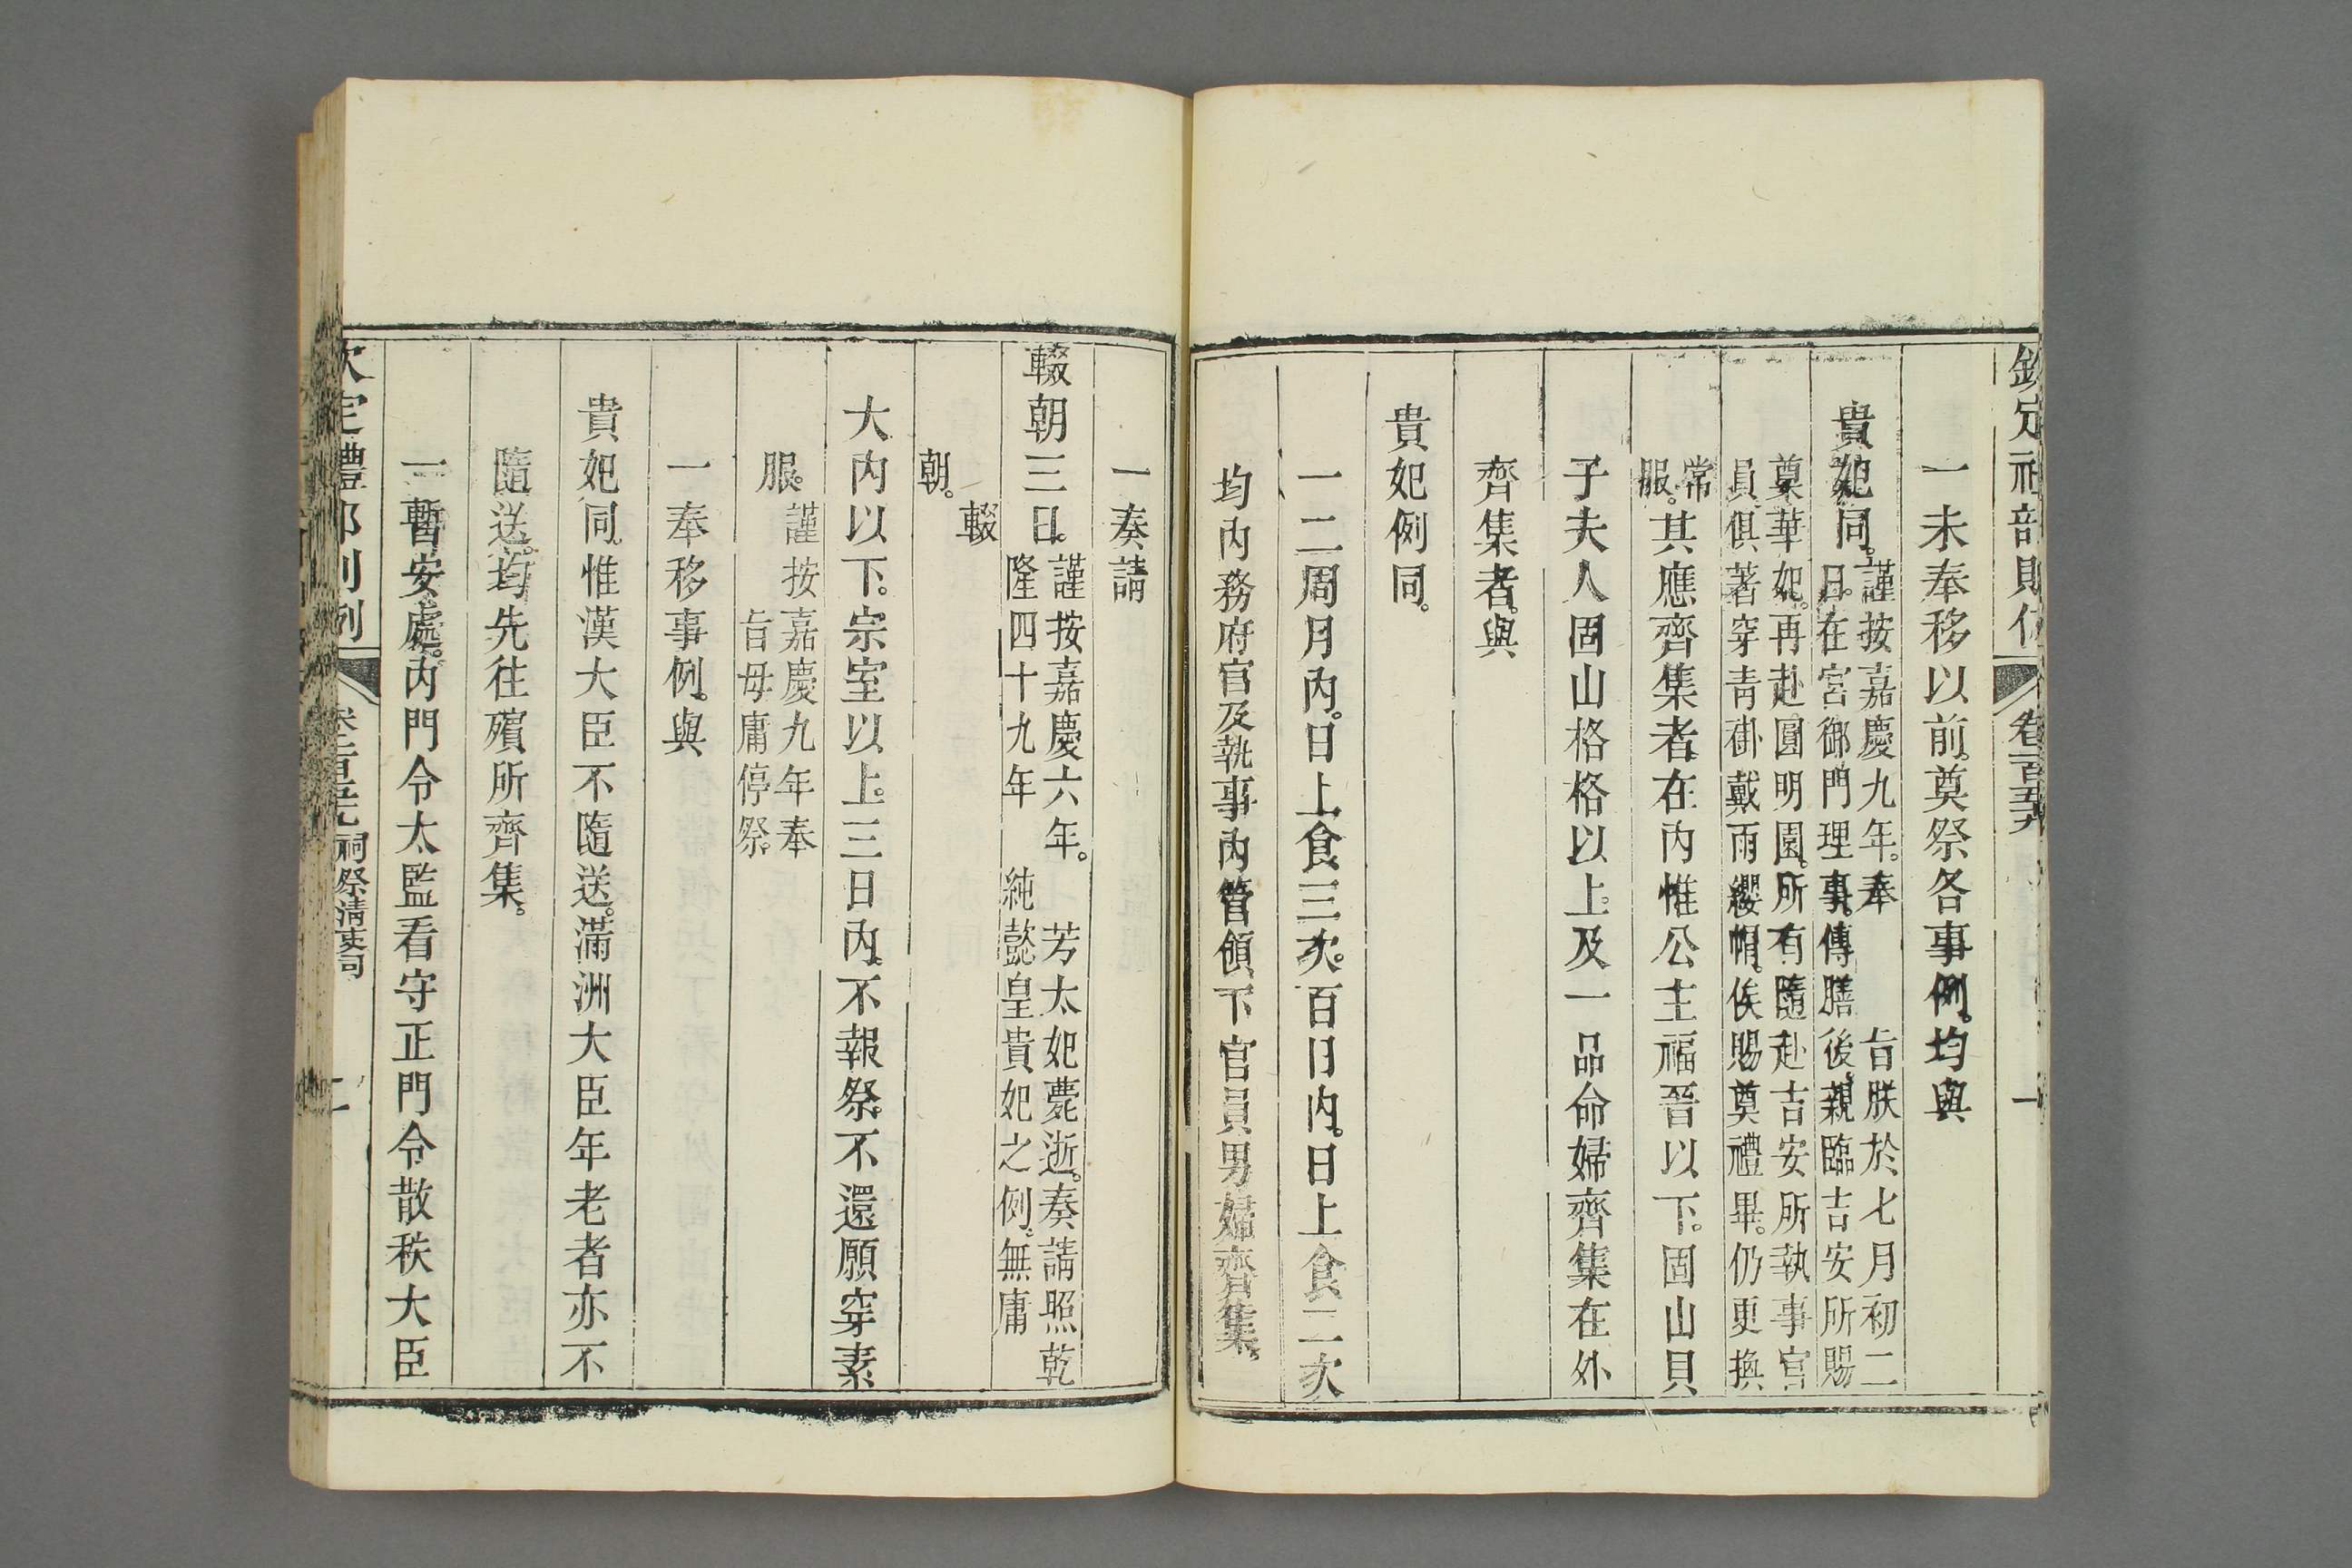 一未奉移以前。奠祭各事例。均與
貴妃同。謹按嘉慶九年。奉 旨朕於七月初二
日。在宮御門理事。傳膳後。親臨吉安所賜
奠華妃。再赴圓明園。所有隨赴吉安所執事官
員俱著穿青褂戴雨纓帽。俟賜奠禮畢。仍更換
常
服。其應齊集者。在內惟公主福晉以下。固山貝
子夫人固山格格以上。及一品命婦齊集在外
齊集者。與
貴妃例同。
一二周月內。日上食三次。百日內。日上食二次
均內務府官及執事內管領下官員男婦齊集。
一奏請
輟朝三日。謹按嘉慶六年。 芳太妃薨逝。奏請照乾
隆四十九年 純懿皇貴妃之例。無庸
輟
朝。
大內以下。宗室以上。三日內。不報祭。不還願穿素
服。謹按嘉慶九年奉
旨毋庸停祭。
一奉移事例。與
貴妃同。惟漢大臣不隨送。滿洲大臣年老者亦不
隨送。均先往殯所齊集。
一暫安處。內門令太監看守正門令散秩大臣
禮部則例 祠祭清吏司 二